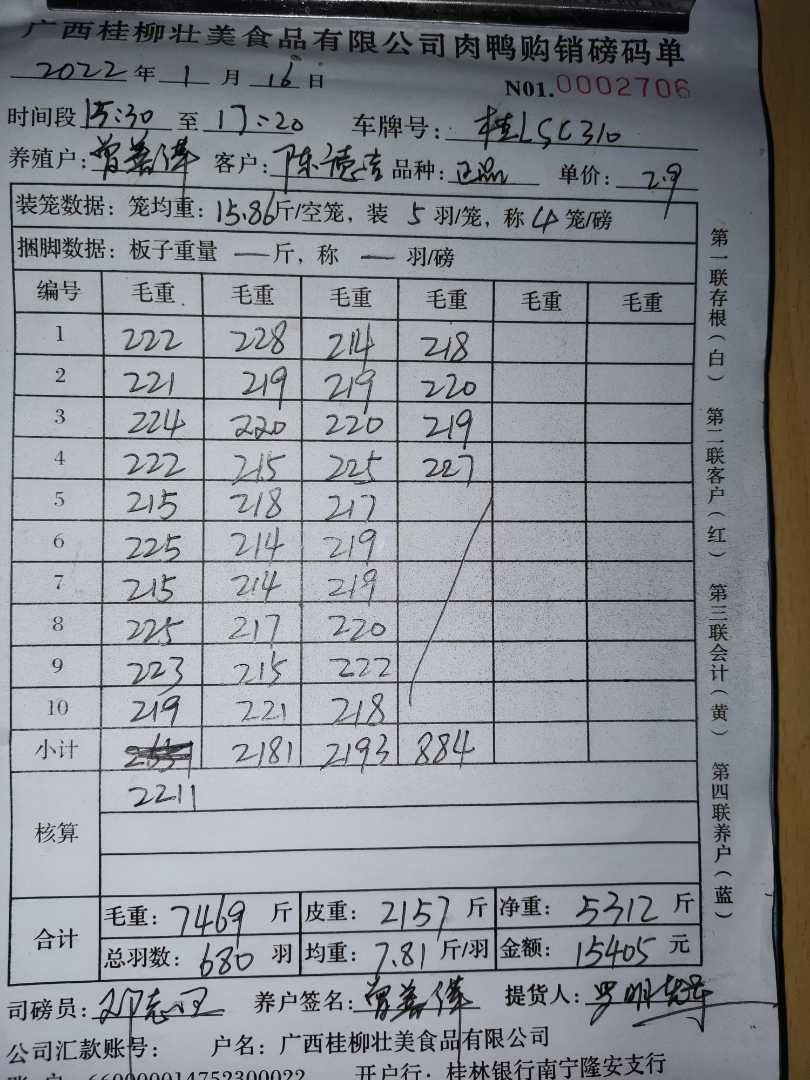 广西桂柳壮美食品有限公司肉鸭购销磅码单
2022 年 1 月 16 日 N01.0002706
时间段 15:30 至 17:20 车牌号: 桂LSC310
养殖户: 曾善伟 客户: 陈德吉 品种: 正品 单价: 2.9
装笼数据: 笼均重: 15.86 斤/空笼, 装 5 羽/笼, 称 4 笼/磅
捆脚数据: 板子重量 — 斤, 称 — 羽/磅
编号 毛重 毛重 毛重 毛重 毛重 毛重
1 222 228 214 218
2 221 219 219 220
3 224 220 220 219
4 222 215 225 227
5 215 218 217
6 225 214 219
7 215 214 219
8 225 217 220
9 223 215 222
10 219 221 218
小计 2181 2193 884
2211
核算
合计 毛重: 7469 斤 皮重: 2157 斤 净重: 5312 斤
总羽数: 680 羽 均重: 7.81 斤/羽 金额: 15405 元
司磅员: 邓志 养户签名: 曾善伟 提货人: 罗明
公司汇款账号: 户名: 广西桂柳壮美食品有限公司
账 户 660000014752300022 开户行: 桂林银行南宁隆安支行
第一联存根(白) 第二联客户(红) 第三联会计(黄) 第四联养户(蓝)